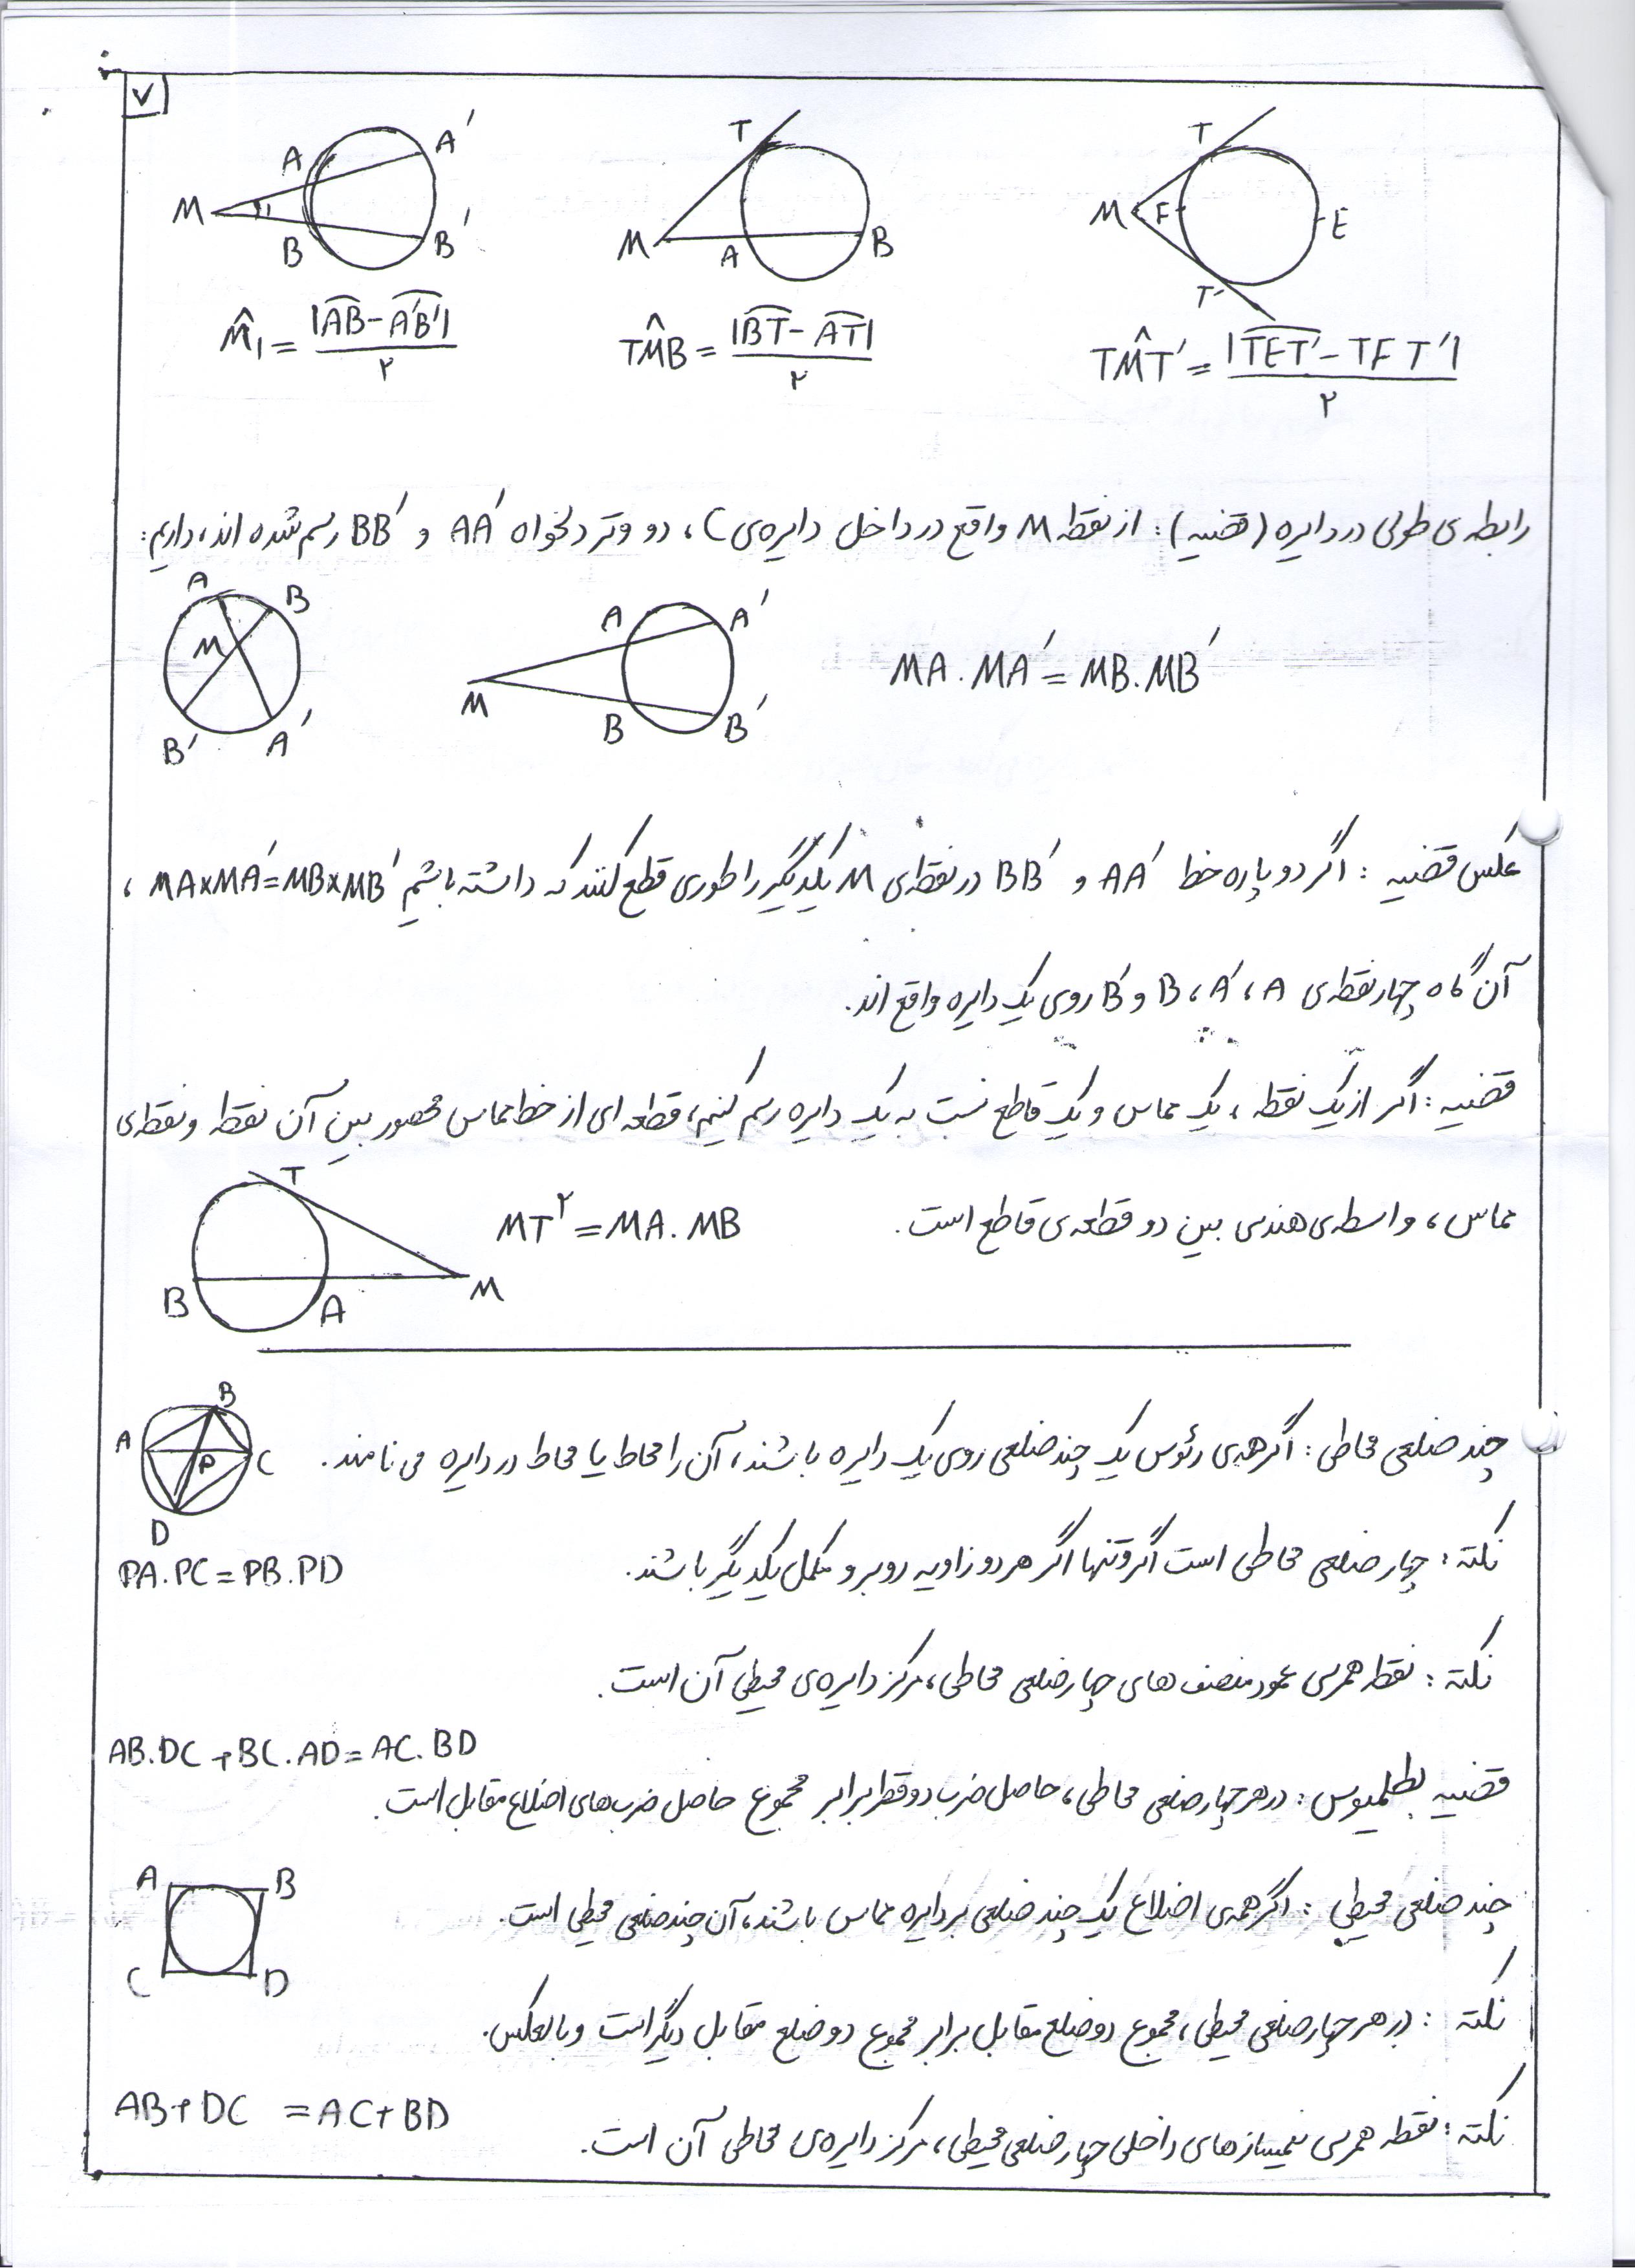 ۷
A A' M ۱ B B'
T M A B
T M F E T'
M̂₁ = |AB - A'B'| / ۲
TM̂B = |BT - AT| / ۲
TM̂T' = |TET' - TFT'| / ۲
رابطه ی طولی در دایره (قضیه): از نقطه M واقع در داخل دایره‌ی C، دو وتر دلخواه AA' و BB' رسم شده اند، داریم:
A B M B' A'
A A' M B B'
MA . MA' = MB . MB'
عکس قضیه: اگر دو پاره خط AA' و BB' در نقطه‌ی M یکدیگر را طوری قطع کنند که داشته باشیم MA×MA'=MB×MB'،
آن گاه چهار نقطه‌ی A، A'، B و B' روی یک دایره واقع اند.
قضیه: اگر از یک نقطه، یک مماس و یک قاطع نسبت به یک دایره رسم کنیم، قطعه ای از خط مماس محصور بین آن نقطه و نقطه‌ی
مماس، واسطه‌ی هندسی بین دو قطعه‌ی قاطع است.
MT² = MA . MB
T B A M
چند ضلعی محاطی: اگر همه‌ی رئوس یک چند ضلعی روی یک دایره باشند، آن را محاط یا محاط در دایره می نامند.
A B C P D
نکته: چهار ضلعی محاطی است اگر و تنها اگر هر دو زاویه روبرو مکمل یکدیگر باشند.
PA.PC = PB.PD
نکته: نقطه همرسی عمود منصف های چهار ضلعی محاطی، مرکز دایره‌ی محیطی آن است.
AB.DC + BC.AD = AC.BD
قضیه بطلمیوس: در هر چهار ضلعی محاطی، حاصل ضرب دو قطر برابر مجموع حاصل ضرب های اضلاع مقابل است.
چند ضلعی محیطی: اگر همه‌ی اضلاع یک چند ضلعی بر دایره مماس باشند، آن چند ضلعی محیطی است.
A B C D
نکته: در هر چهار ضلعی محیطی، مجموع دو ضلع مقابل برابر مجموع دو ضلع مقابل دیگر است و بالعکس.
AB + DC = AC + BD
نکته: نقطه همرسی نیمساز های داخلی چهار ضلعی محیطی، مرکز دایره‌ی محاطی آن است.